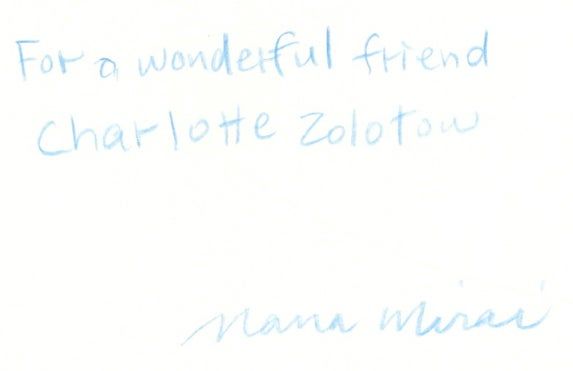 For a wonderful friend
Charlotte Zolotow
Nana Mirai